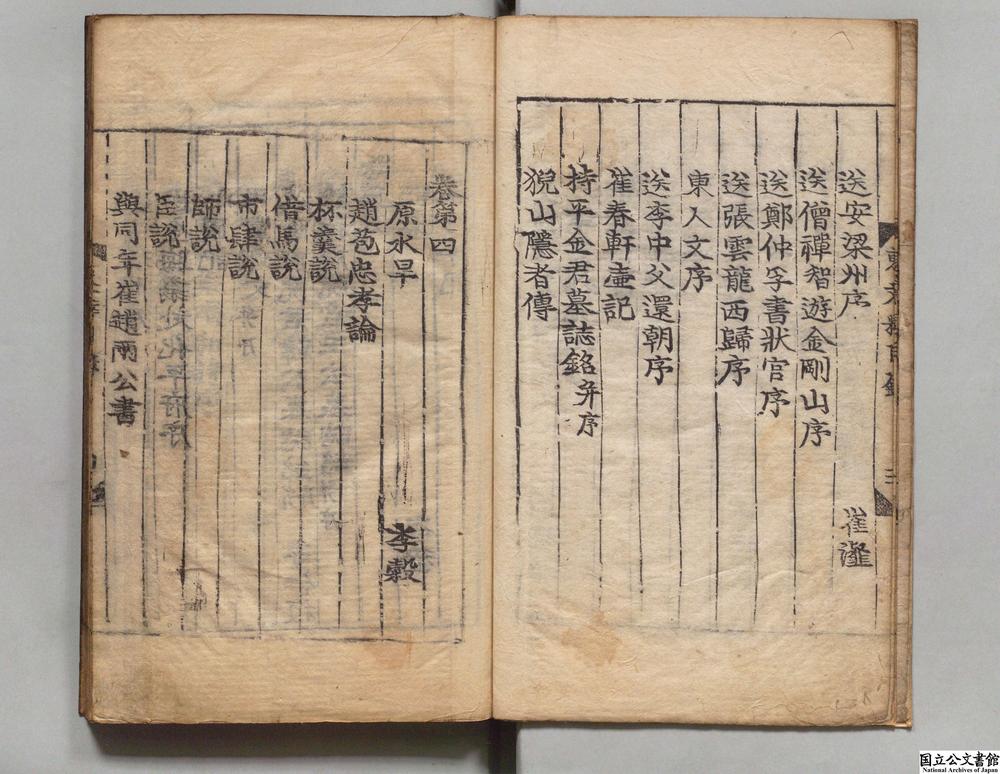 送安梁州序 崔瀣
送僧禪智遊金剛山序
送鄭仲孚書狀官序
送張雲龍西歸序
東人文序
送李中父還朝序
崔春軒壷記
持平金君墓誌銘并序
猊山隱者傳
卷第四
原水旱 李穀
趙苞忠孝論
杯羹說
借馬說
市肆說
師說
臣說
與同年崔趙兩公書
国立公文書館
National Archives of Japan